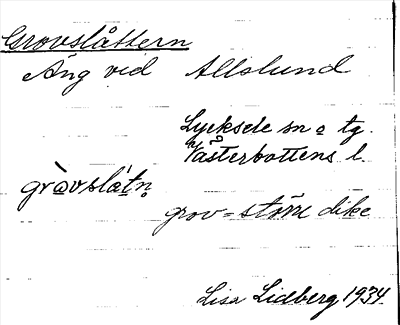 Grovslåttern
Äng vid Allslund
Lycksele sn o tg.
Västerbottens l.
gròvslátn̥
grov = större dike
Lisa Lidberg 1934.